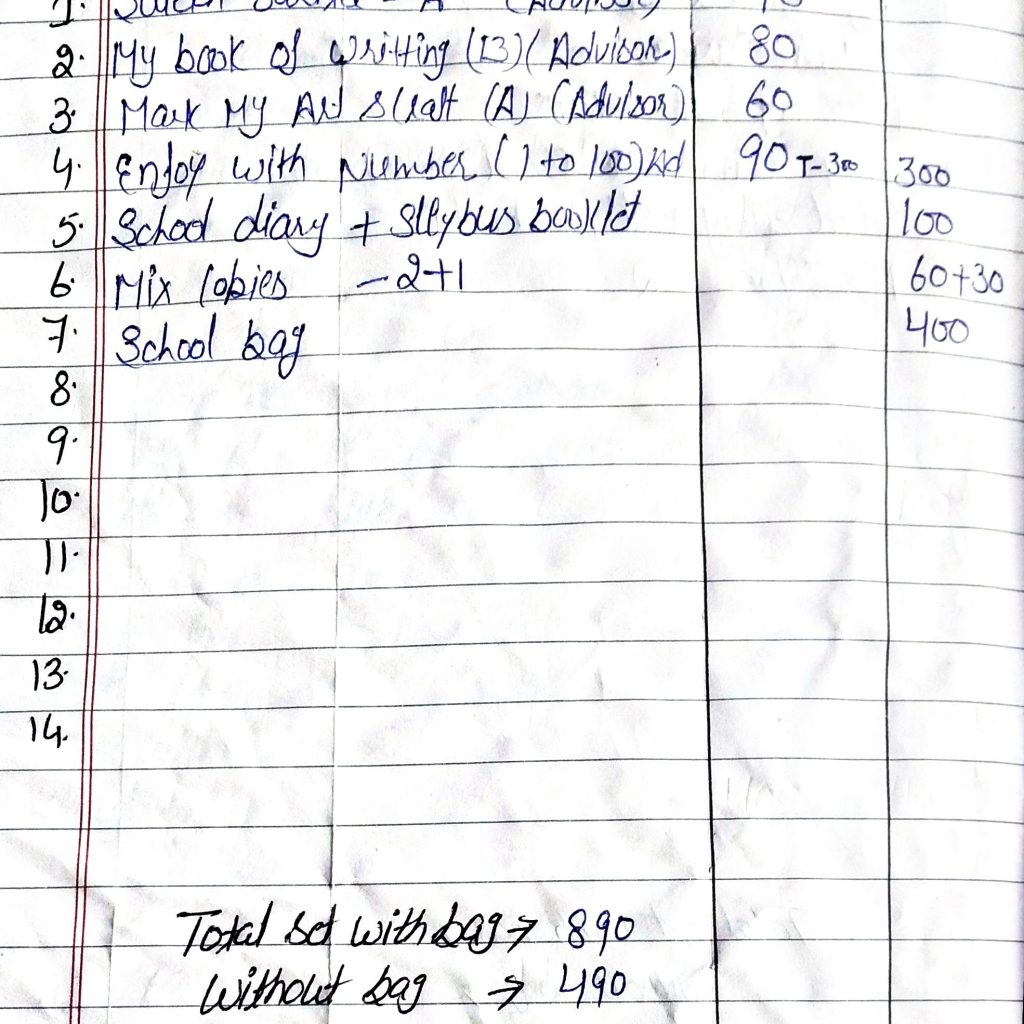 1.
2. My book of Writting (B) (Advisor) 80
3. Mark My Art & Craft (A) (Advisor) 60
4. Enjoy with Number (1 to 100) Ad 90 T-300 300
5. School diary + Sllybus booklet 100
6. Mix Copies - 2+1 60+30
7. School bag 400
8.
9.
10.
11.
12.
13.
14.
Total set with bag → 890
Without bag → 490